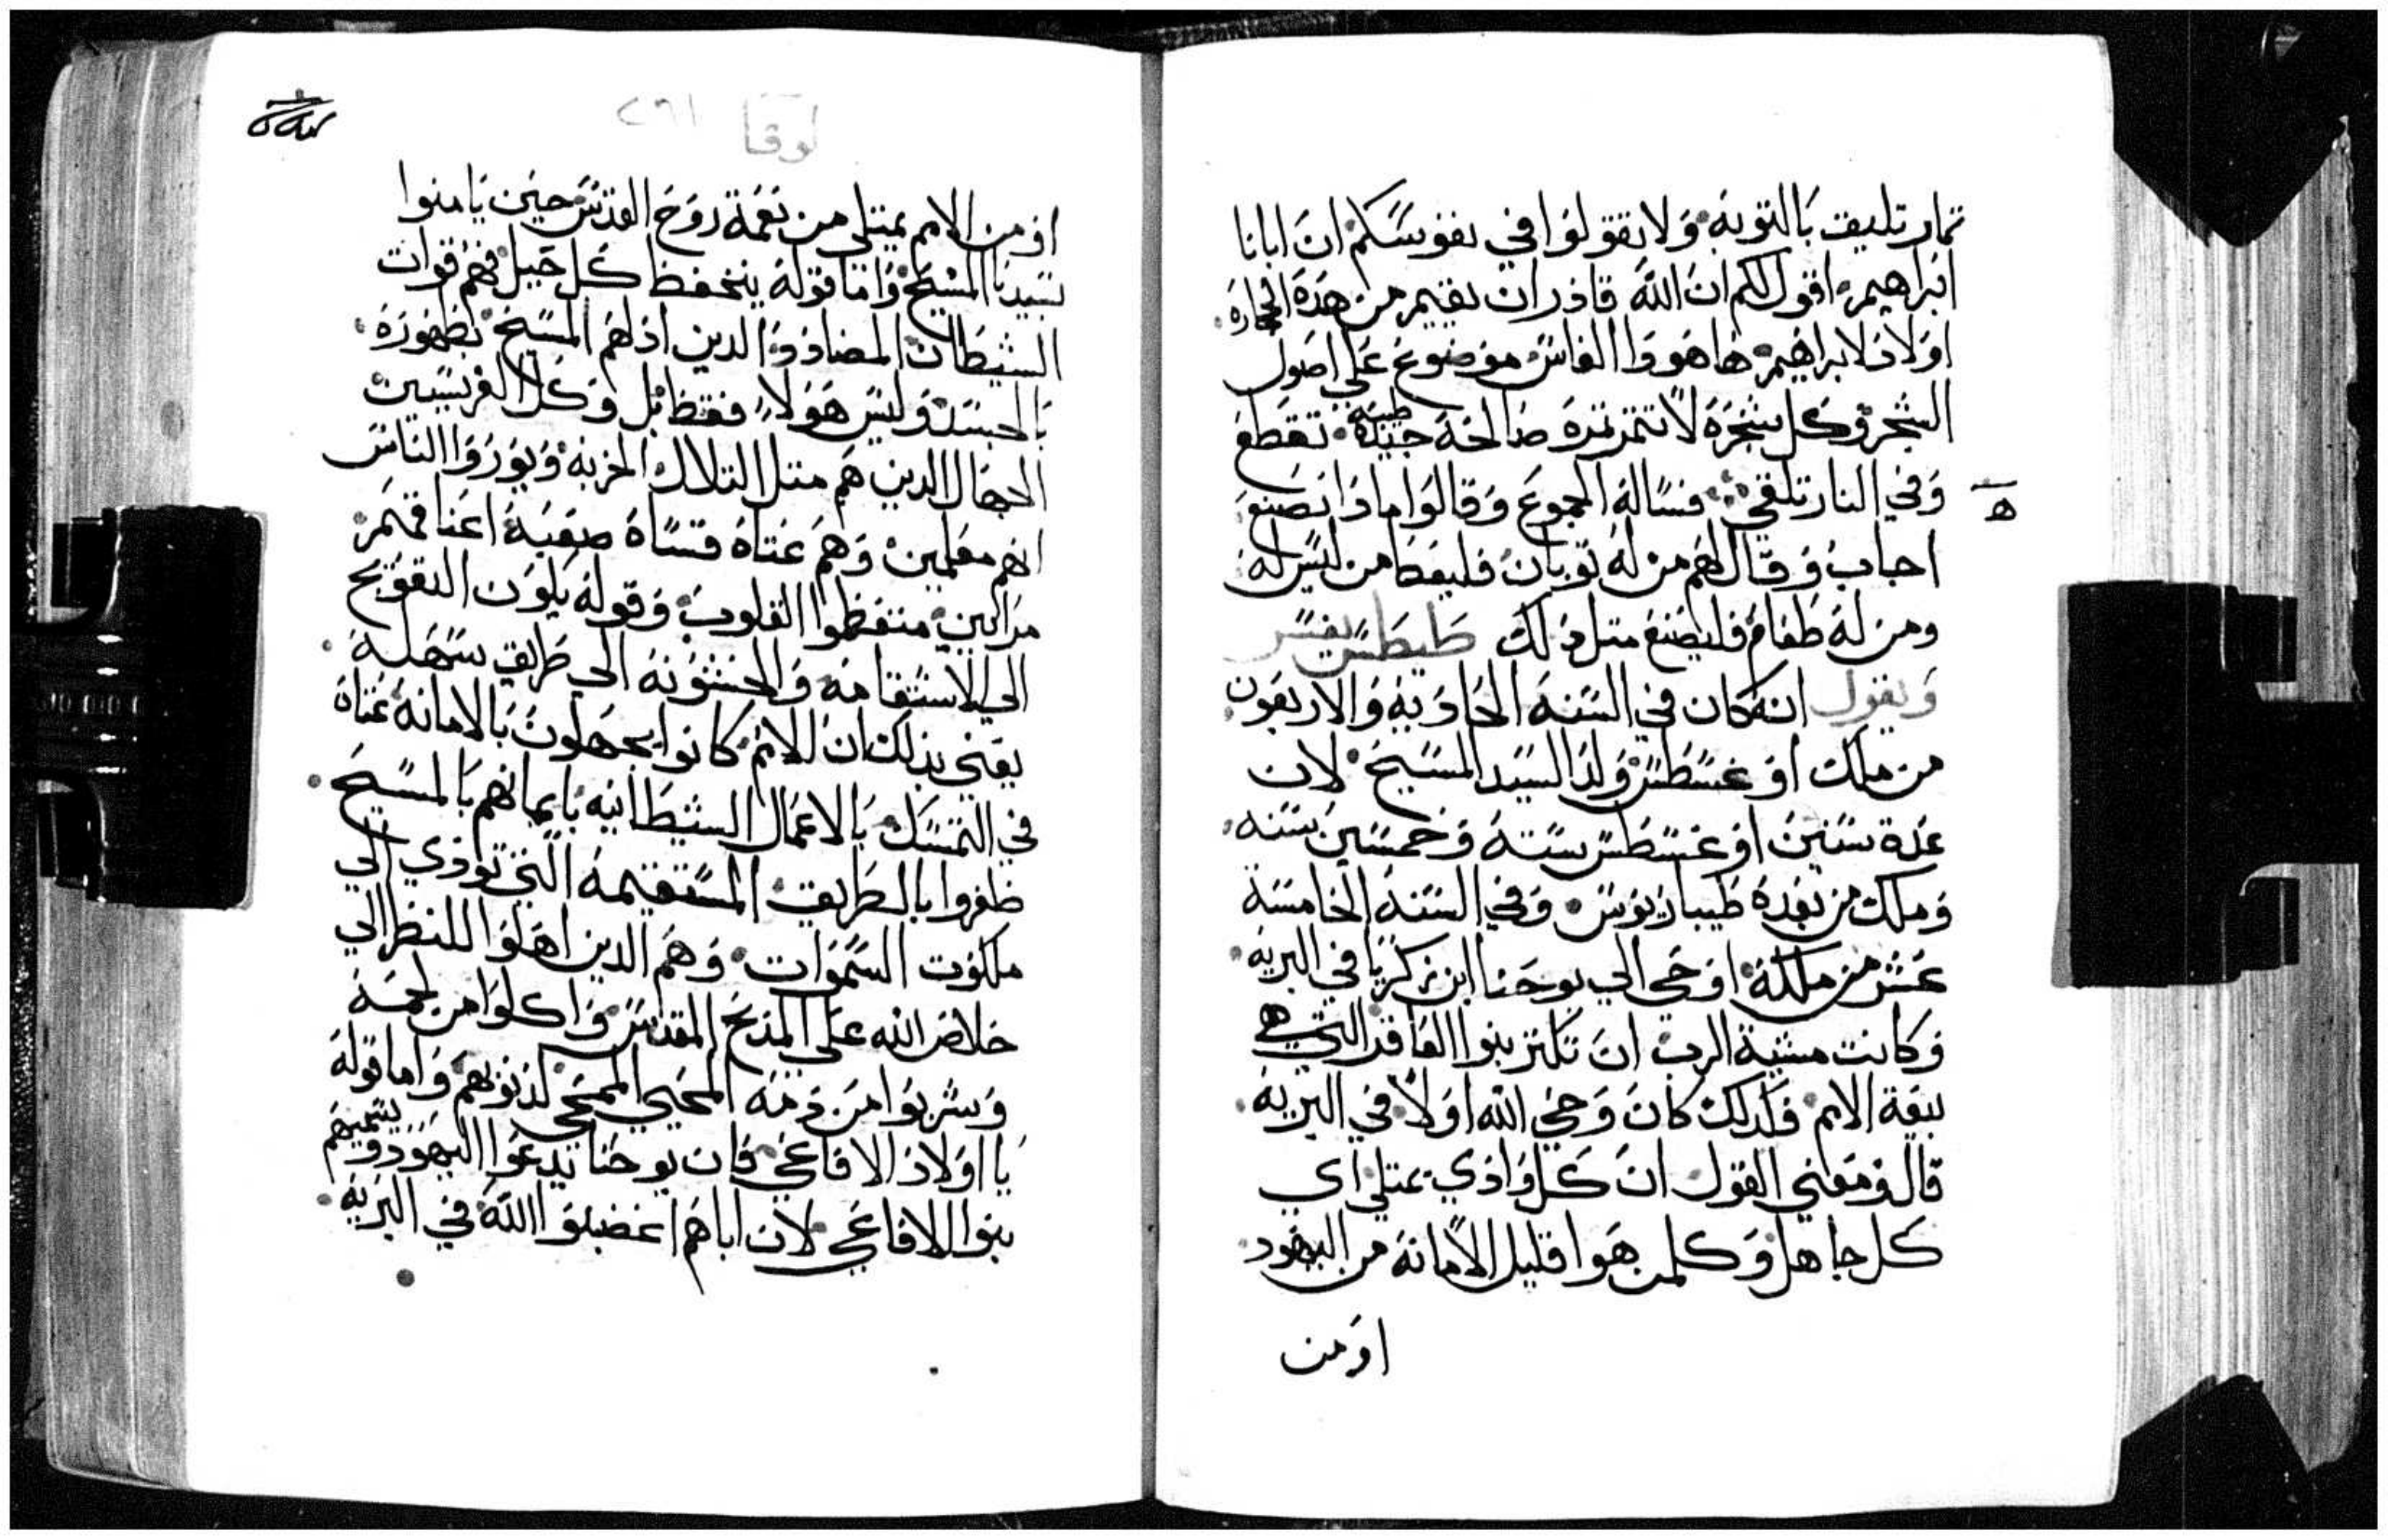 تمار تليق بالتوبه ولا تقولوا في نفوسكم ان ابانا
ابراهيم اقول لكم ان الله قادر ان يقيم من هده الحجاره
اولاد لابراهيم ها هودا الفاس موضوع علي اصول
الشجر وكل شجره لا تتمر تمره صالحة جيده طيبه تقطع
وفي النار تلقي فساله الجموع وقالوا مادا نصنع
ه
اجاب وقال لهم من له توبان فليعطا من ليس له
ومن له طعام فليصنع متل دلك طيطس يفسر
ويقول انه كان في السنه الحاديه والاربعون
من ملك اوغسطس ولد السيد المسيح لان
عدة سنين اوغسطس سته وخمسين سنه
وملك من بعده طيباريوس وفي السنه الخامسة
عشر من ملكه اوحي الي يوحنا ابن زكريا في البريه
وكانت مشية الرب ان تكتر بنوا العاقر التي هي
بيعة الامم فلدلك كان وحي الله اولا في البريه
قال ومعني القول ان كل وادي يمتلي اي
كل جاهل وكلمن هوا قليل الامانة من اليهود
او من
لوقا ٢٦١
او من الامم يمتلي من نعمة روح القدس حين يامنوا
بسيدنا المسيح واما قوله ينخفظ كل جبل فهم قوات
الشيطان المضادد الدين ادلهم المسيح بظهوره
بالجسد وليس هولا فقط بل وكل الفريسيين
الجهال الدين هم متل التلال الخربه ويوروا الناس
انهم معلمين وهم عتاه قساه صعبة اعناقهم
مراايين متعظموا القلوب وقوله يكون التعويج
الي الاستقامه والخشونه الي طريق سهله
يعني بدلك ان الامم كانوا يجهلون بالامانة عتاه
في التمسك بالاعمال الشيطانيه بايمانهم بالمسيح
ظفروا بالطريق المستقيمه التي تودي الي
ملكوت السموات وهم الدين اهلوا للنظر الي
خلاص الله علي المذبح المقدس واكلوا من لحمه
وشربوا من دمه المحيي الممحي لدنوبهم واما قوله
يا اولاد الافاعي فان يوحنا يدعوا اليهود ويسميهم
بنوا الافاعي لان اباهم اغضبوا الله في البريه